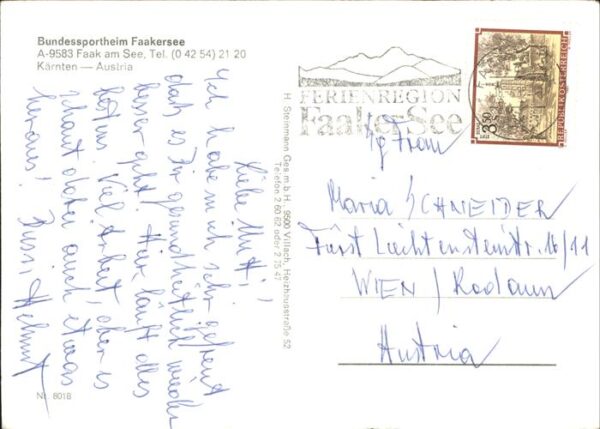 Bundessportheim Faakersee
A-9583 Faak am See, Tel. (0 42 54) 21 20
Kärnten — Austria
Liebe Mutti!
Ich habe mich sehr gefreut
daß es Dir gesundheitlich wieder
besser geht. Hier läuft alles
bestens. Viel Arbeit, aber es
schaut dabei auch etwas
heraus!
Bussi Helmut
Nr. 8018
H. Steinmann Ges.m.b.H., 9500 Villach, Heizhausstraße 52
Telefon 2 60 62 oder 2 75 47
FERIENREGION
Faaker See
REPUBLIK ÖSTERREICH
3.50
Frau
Maria SCHNEIDER
Fürst Liechtensteinstr. 16/11
WIEN / Rodaun
Austria